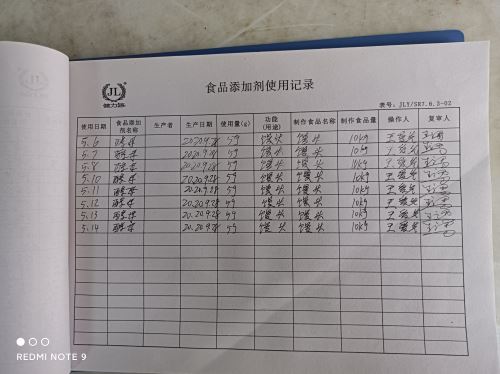 JL
健力旨
食品添加剂使用记录
表号: JLY/SR7.6.3-02
使用日期 食品添加剂名称 生产者 生产日期 使用量(g) 功能(用途) 制作食品名称 制作食品量 操作人 复审人
5.6 酵母 2020.9.28 5g 馒头 馒头 10kg
5.7 酵母 2020.9.28 5g 馒头 馒头 10kg
5.8 酵母 2020.9.28 5g 馒头 馒头 10kg
5.10 酵母 2020.9.28 5g 馒头 馒头 10kg
5.11 酵母 2020.9.28 5g 馒头 馒头 10kg
5.12 酵母 2020.9.28 5g 馒头 馒头 10kg
5.13 酵母 2020.9.28 5g 馒头 馒头 10kg
5.14 酵母 2020.9.28 5g 馒头 馒头 10kg
REDMI NOTE 9